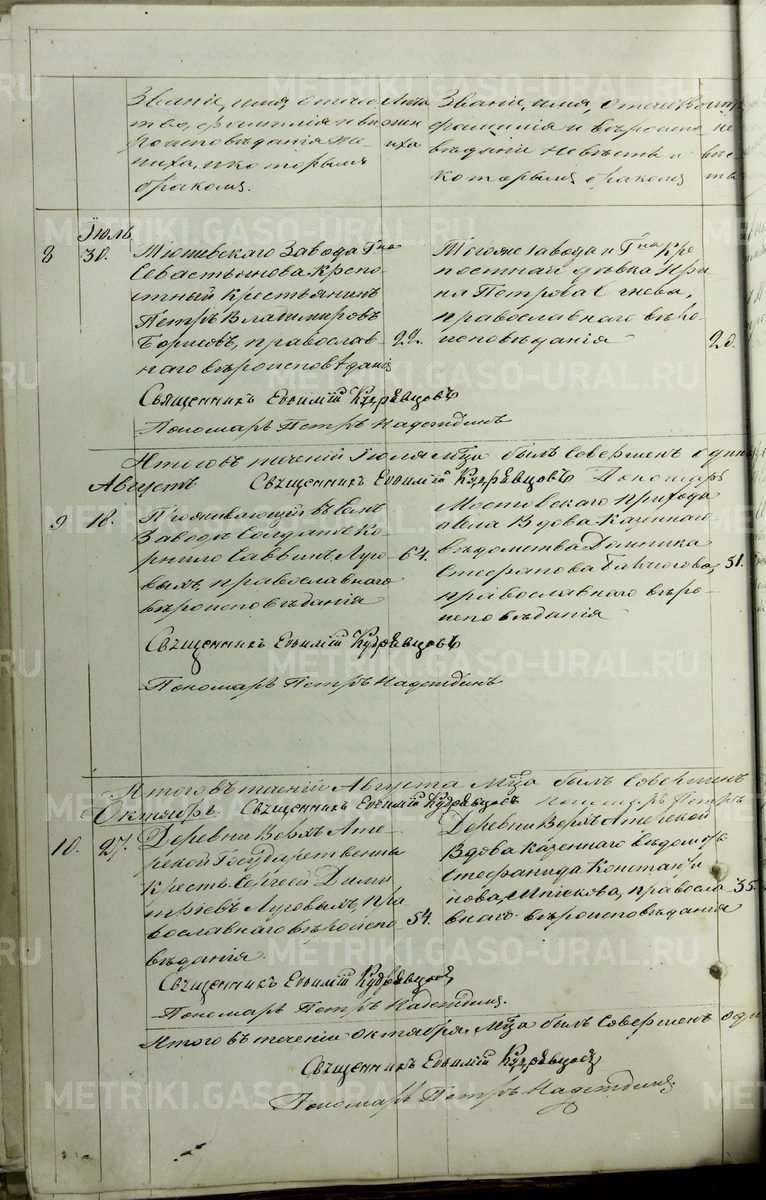 Званіе, имя, отече-
тво, фамилія и вѣ-
роисповѣданія же-
ниха, и которымъ
бракомъ.
Лѣта
жен
иха
Званіе, имя, отечество
фамилія и вѣроиспо
вѣданіе невѣсты и
которымъ бракомъ
не
вѣс
ты
Іюль
8
30.
Завода Гна
Севастьянова крепо-
стный крестьянинъ
Петръ Владимировъ
Борисовъ, православ-
наго вѣроисповѣданія
22.
Тогоже завода и Гна кре
постная дѣвка Ири
на Петрова
православнаго вѣро-
исповѣданія
20.
Священникъ Евѳимій Кудрявцовъ
Пономарь Петръ Надеждинъ
Итого въ теченіи Іюля мца былъ Совершенъ одинъ
Августъ
Священникъ Евѳимій Кудрявцовъ Пономарь
9
18.
Проживающій въ
Заводѣ Солдатъ Ко-
рнило Саввинъ Луго
выхъ, православнаго
вѣроисповѣданія
64.
Мостовскаго прихода
села Вдова Казеннаго
вѣдомства Домника
Стефанова
православнаго вѣро-
исповѣданія
51.
Священникъ Евѳимій Кудрявцовъ
Пономарь Петръ Надеждинъ
Итого въ теченій Августа Мца былъ Совершенъ
Октябрь
Священникъ Евѳимій Кудрявцовъ пономарь Петръ
10.
27.
Деревни Верхъ Ате-
рской Государственный
крест. Сергей Дими
тріевъ Луговыхъ, пра
вославнаго вѣроиспо
вѣданія
54.
Деревни Верхъ
Вдова казеннаго вѣдомств
Стефанида Константи
нова, правосла
внаго вѣроисповѣданія
35.
Священникъ Евѳимій Кудрявцовъ
Пономарь Петръ Надеждинъ.
Итого въ теченіи Октября Мца былъ Совершенъ оди
Священникъ Евѳимій Кудрявцовъ
Пономарь Петръ Надеждинъ
METRIKI.GASO-URAL.RU